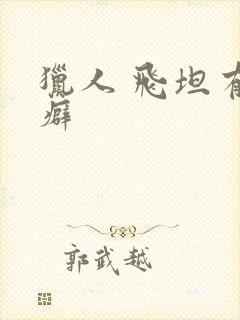 獵人飛坦有
癖
郭武越